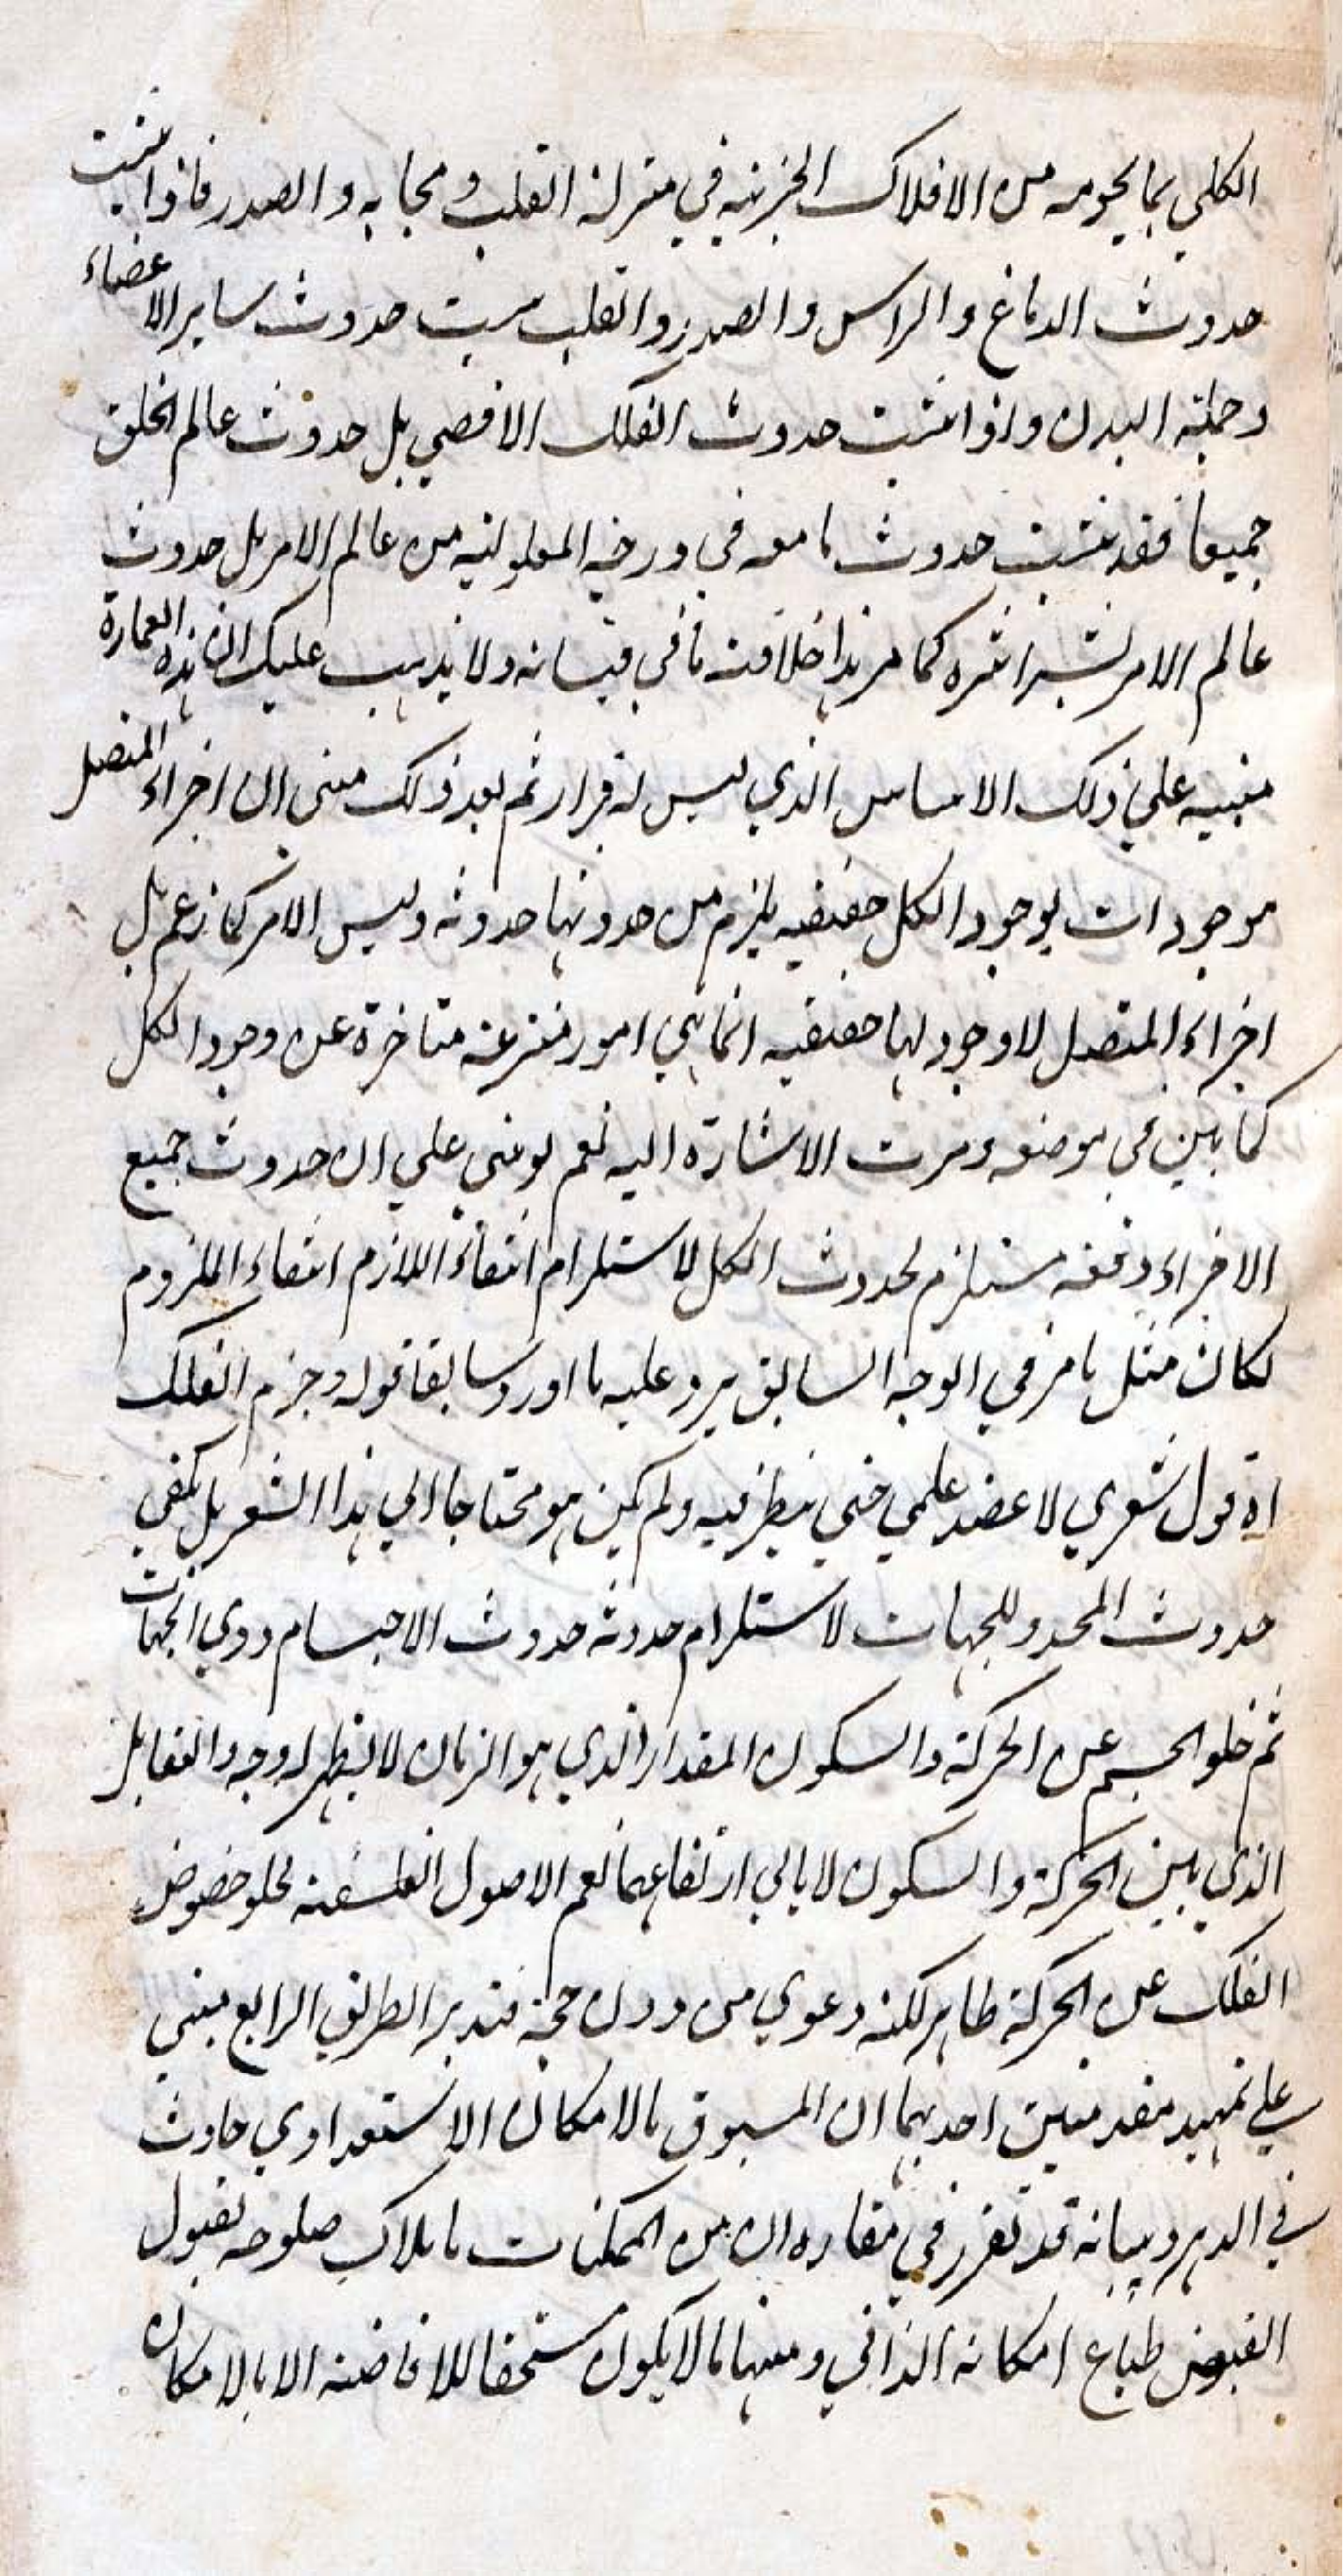 الكلي بما يحويه من الافلاك الجزئيه في منزلة القلب و مجابه و الصدر فاذا ثبت
حدوث الدماغ و الراس و الصدر و القلب ثبت حدوث ساير الاعضاء
وجملة البدن و اذا ثبت حدوث الفلك الاقصي بل حدوث عالم الخلق
جميعا فقد ثبت حدوث ما معه في درجة المعلولية من عالم الامر بل حدوث
عالم الامر بشراشره كما مر هذا خلاصة ما في قبسانه ولا يذهب عليك ان هذه العمارة
مبنيه علي ذلك الاساس الذي ليس له قرار ثم بعد ذلك مبني ان اجزاء المتصل
موجودات بوجود الكل حقيقيه يلزم من حدوثها حدوثه وليس الامر كما زعم بل
اجزاء المتصل لا وجود لها حقيقيه انما هي امور منتزعة متاخرة عن وجود الكل
كما بين في موضعه ومرت الاشارة اليه نعم لو بني علي ان حدوث جميع
الاجزاء دفعه مستلزم لحدوث الكل لاستلزام انتفاء اللازم انتفاء الملزوم
لكان مثل ما مر في الوجه السابق يرد عليه ما اورد سابقا قوله وجرم الفلك
اه قول شعري لا عضد علمي حتي ينظر فيه ولم يكن هو محتاجا الي هذا الشعر بل يكفي
حدوث المحدد للجهات لاستلزام حدوثه حدوث الاجسام ذوي الجهات
ثم خلو الجسم عن الحركة والسكون المقدار الذي هو الزمان لا يظهر له وجه والتقابل
الذي بين الحركة والسكون لا يابي ارتفاعهما نعم الاصول الفلسفية لخلو خصوص
الفلك عن الحركة ظاهر لكنه دعوي من دون حجة فتدبر الطريق الرابع مبني
علي تمهيد مقدمتين احديهما ان المسبوق بالامكان الاستعدادي حادث
في الدهر وبيانه قد تقرر في مقاره ان من الممكنات ما ملاك صلوحه لقبول
الفيض طباع امكانه الذاتي ومنها ما لا يكون مستحقا للافاضة الا بالامكان